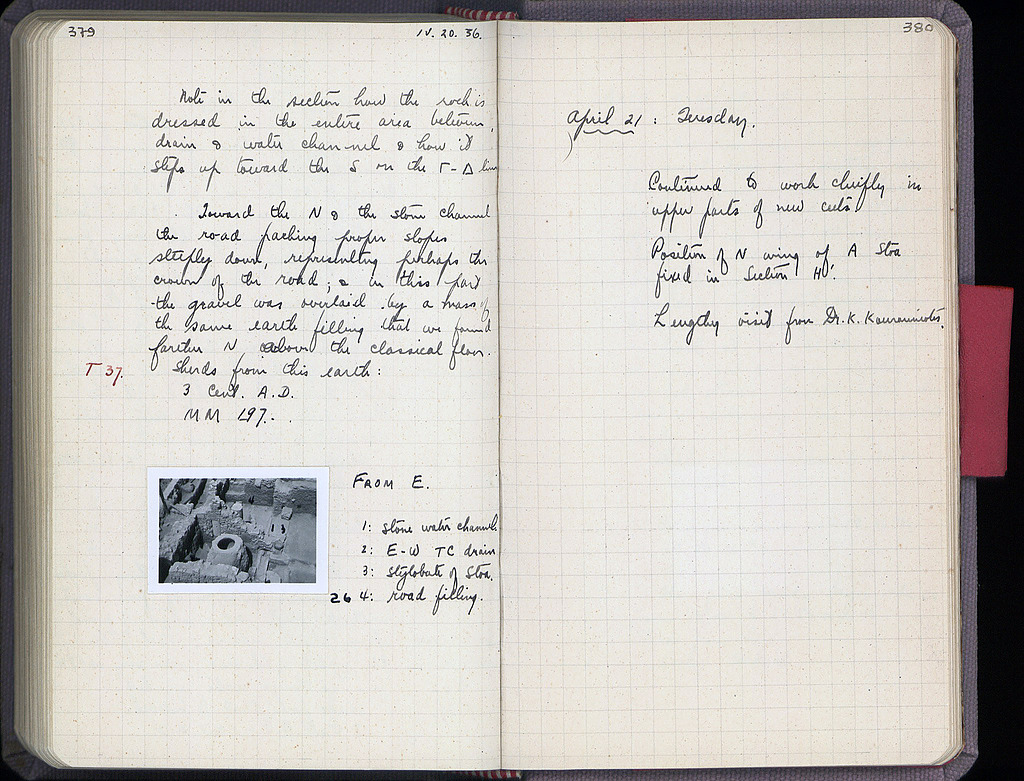 379
IV. 20. 36.
Note in the section how the rock is
dressed in the entire area between
drain & water channel & how it
steps up toward the S on the Γ-Δ line
Toward the N & the stone channel
the road packing proper slopes
steeply down, representing perhaps the
crown of the road; & in this part
the gravel was overlaid by a mass of
the same earth filling that we found
farther N above the classical floor.
T 37. Sherds from this earth:
3 Cent. A.D.
MM 197.
FROM E.
1: stone water channel.
2: E-W TC drain
3: stylobate of Stoa.
26 4: road filling.
380
April 21: Tuesday.
Continued to work chiefly in
upper parts of new cuts.
Position of N wing of A Stoa
fixed in Section H'.
Lengthy visit from Dr. K. Kourouniotes.